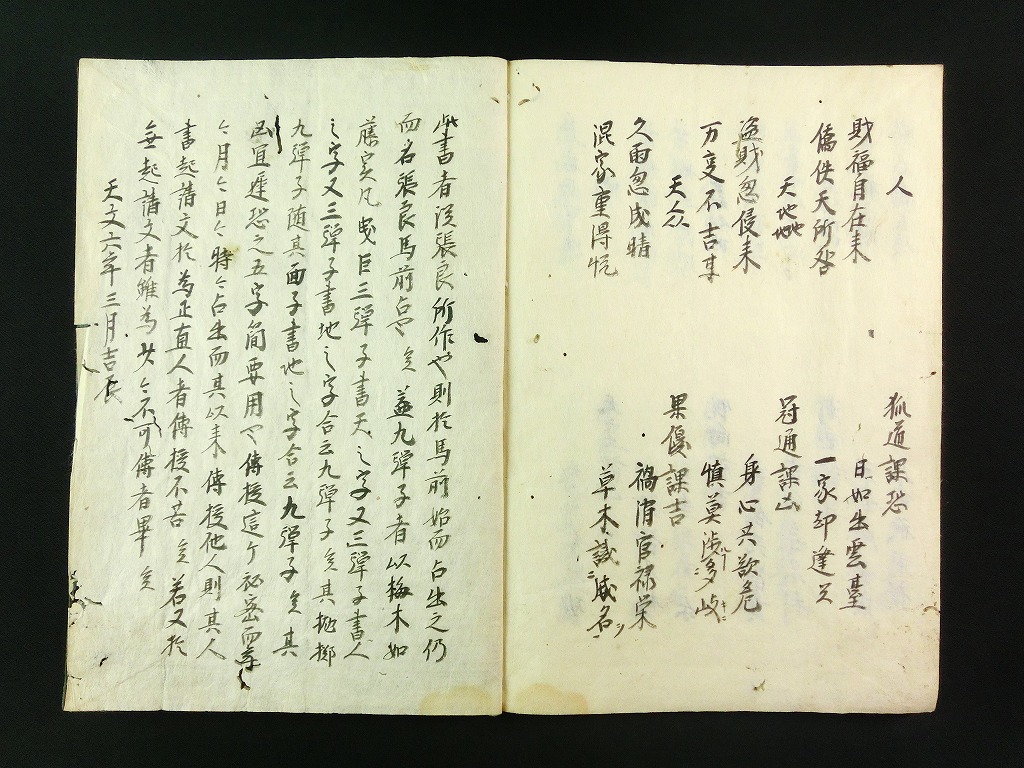 人 狐通課恐
財福自在来 日如出雲臺
僑佚天所 一家却逢
天地地 冠通課凶
盗財忽侵来 身心共欲危
万変不吉 慎莫渉多岐
天众 果優課吉
久雨忽成晴 禍消官禄栄
混家重得 草木誠滅名
此書者従張良所作也則於馬前始而占出之仍
而名張良馬前占也矣 蓋九弾子者以梅木如
藤実凡曳臣三弾子書天之字又三弾子書人
之字又三弾子書地之字合云九弾子矣其抛擲
九弾子随其面子書地之字合云九弾子矣其
凶宜遅恐之五字簡要用也傳授這ケ秘密四
今月今日今時今占出而其以来傳授他人則其人
書起請文於為正直人者傳授不苦矣若又於
無起請文者雖為 不可傳者畢矣
天文六年三月吉辰